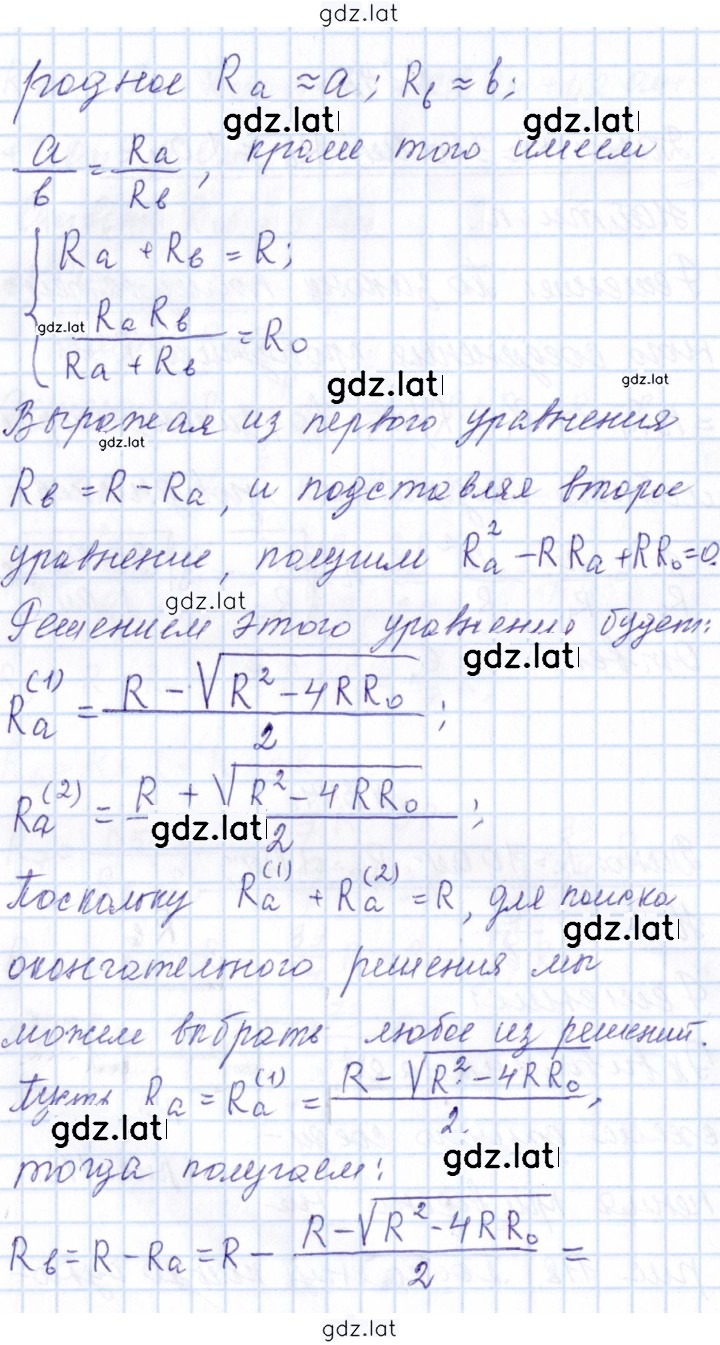 gdz.lat
родное Rₐ ≈ a; Rв ≈ в;
gdz.lat gdz.lat
a/в = Rₐ/Rв, кроме того имеем
{ Rₐ + Rв = R;
gdz.lat RₐRв/(Rₐ + Rв) = R₀
gdz.lat gdz.lat
Выражая из первого уравнения
gdz.lat
Rв = R − Rₐ, и подставляя второе
уравнение, получим Rₐ² − RRₐ + RR₀ = 0.
gdz.lat
Решением этого уравнения будет:
gdz.lat
Rₐ⁽¹⁾ = (R − √(R² − 4RR₀))/2;
Rₐ⁽²⁾ = (R + √(R² − 4RR₀))/2;
gdz.lat
Поскольку Rₐ⁽¹⁾ + Rₐ⁽²⁾ = R, для поиска
gdz.lat
окончательного решения мы
можем выбрать любое из решений.
Пусть Rₐ = Rₐ⁽¹⁾ = (R − √(R² − 4RR₀))/2,
gdz.lat gdz.lat
тогда получаем:
Rв = R − Rₐ = R − (R − √(R² − 4RR₀))/2 =
gdz.lat